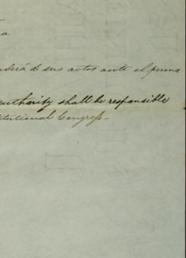 a
nderá de sus actos ante el primer
authority shall be responsible
stitutional Congress.